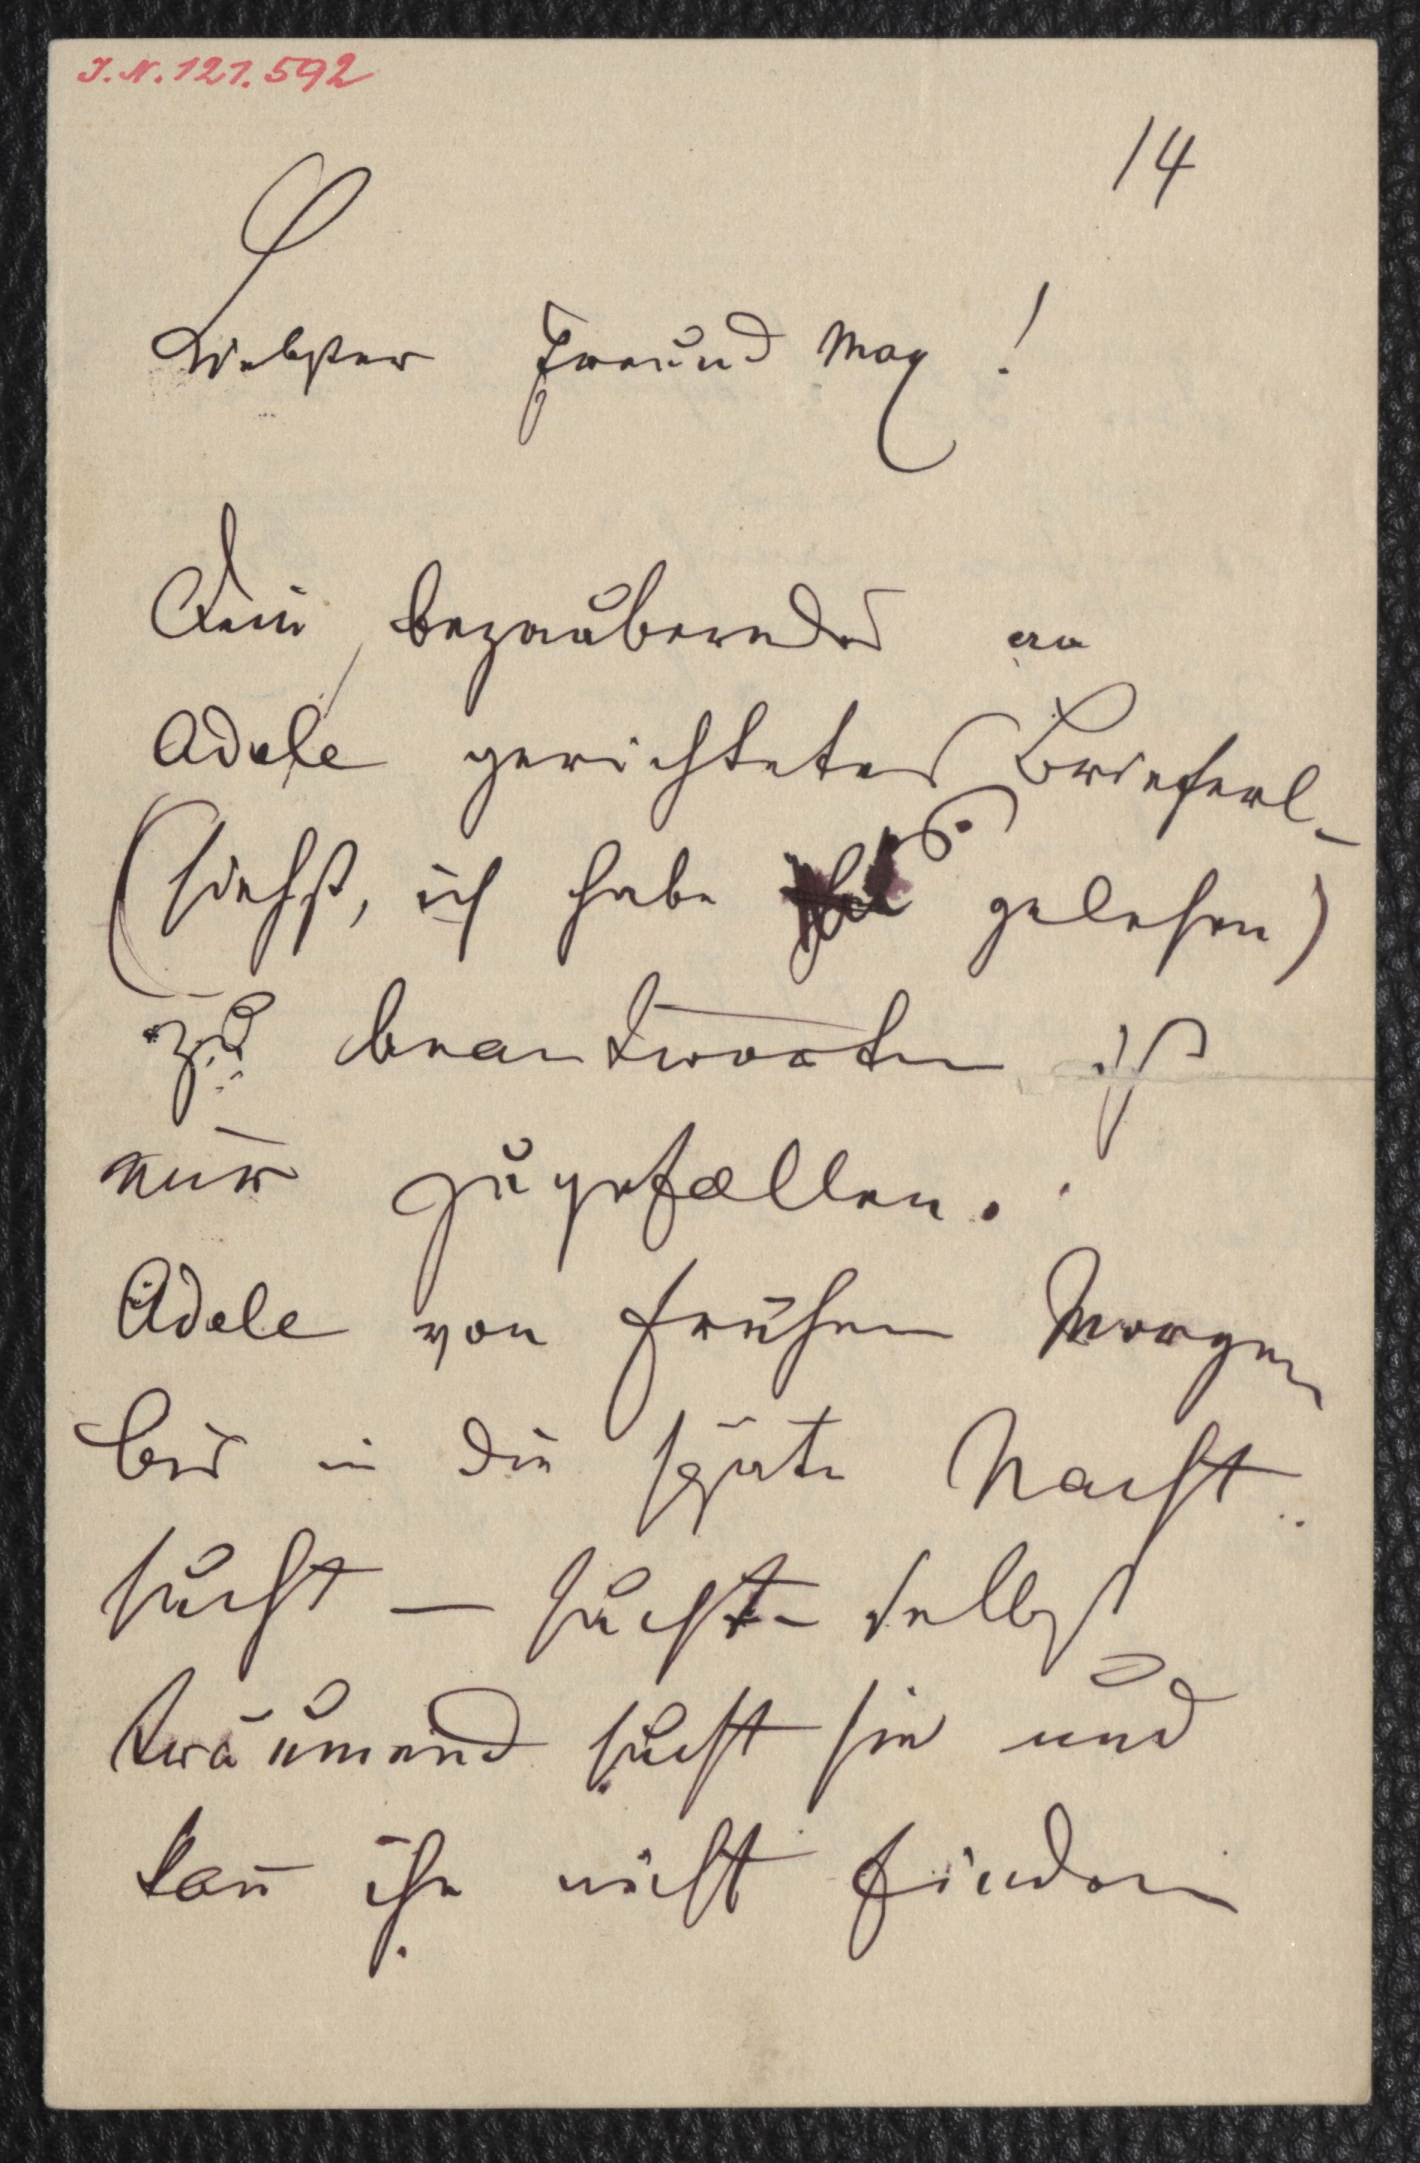 I.N. 121.592
14
Liebster Freund Max!
Dein bezauberndes an
Adele gerichtetes Brieferl –
(siehst, ich habe es gelesen)
zu beantworten ist
mir zugefallen.
Adele von frühem Morgen
bis in die späte Nacht
sucht – sucht – selbst
träumend sucht sie und
kan̄ ihn nicht finden